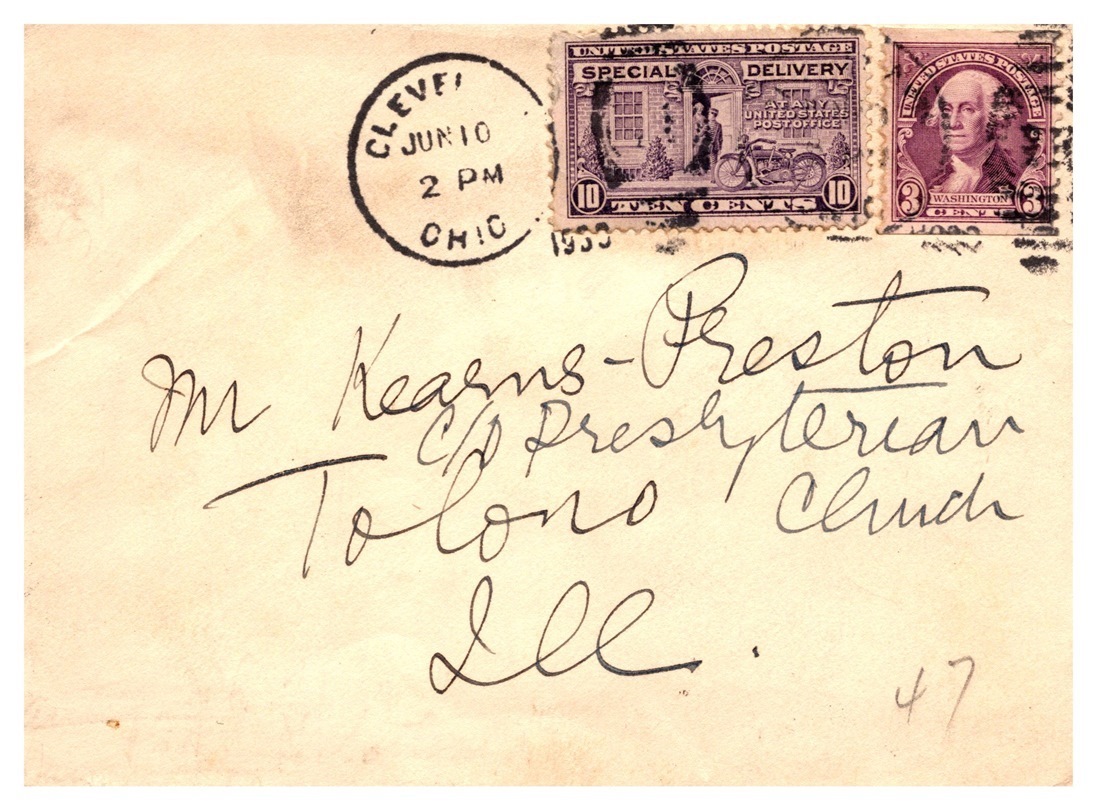 CLEVEL
JUN 10
2 PM
OHIO
1933
UNITED STATES POSTAGE
SPECIAL DELIVERY
AT ANY
UNITED STATES
POST OFFICE
10 TEN CENTS 10
UNITED STATES POSTAGE
3 WASHINGTON 3
CENTS
Mr Kearns-Preston
c/o Presbyterian
Tolono Church
Ill.
47